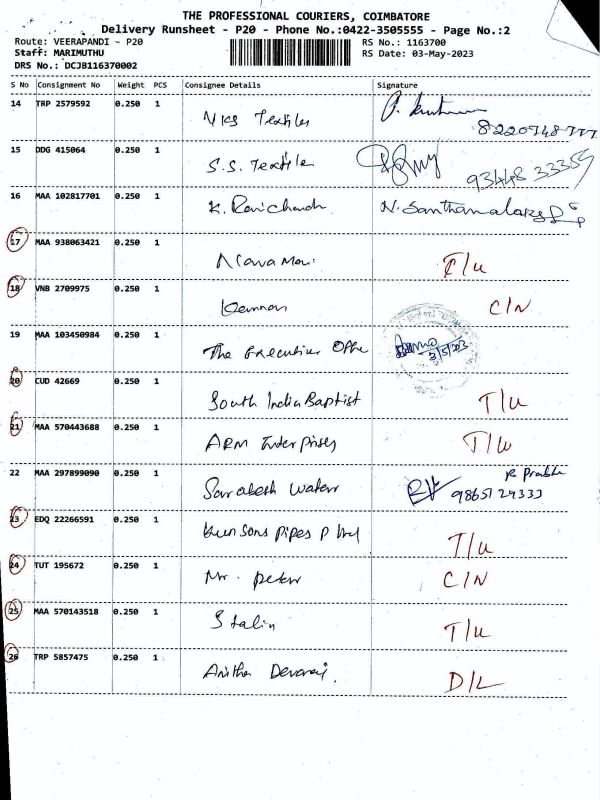 THE PROFESSIONAL COURIERS, COIMBATORE
Delivery Runsheet - P20 - Phone No.:0422-3505555 - Page No.:2
Route: VEERAPANDI - P20 RS No.: 1163700
Staff: MARIMUTHU RS Date: 03-May-2023
DRS No.: DCJB116370002
S No Consignment No Weight PCS Consignee Details Signature
14 TRP 2579592 0.250 1 Textiles
15 DDG 415064 0.250 1 S.S. Textile 93448 33359
16 MAA 102817701 0.250 1 K. Ravichandr N. Santhamalar
17 MAA 938063421 0.250 1 T/U
18 VNB 2709975 0.250 1 Kannan C/N
19 MAA 103450984 0.250 1 The Executive Offe 3/5/2023
20 CUD 42669 0.250 1 South India Baptist T/U
21 MAA 570443688 0.250 1 ARM Enterprises T/U
22 MAA 297899090 0.250 1 Water R Prabhu 98651 29333
23 EDQ 22266591 0.250 1 Sons Pipes P T/U
24 TUT 195672 0.250 1 Mr. Peter C/N
25 MAA 570143518 0.250 1 Stalin T/U
26 TRP 5857475 0.250 1 Anitha Devaraj. D/L